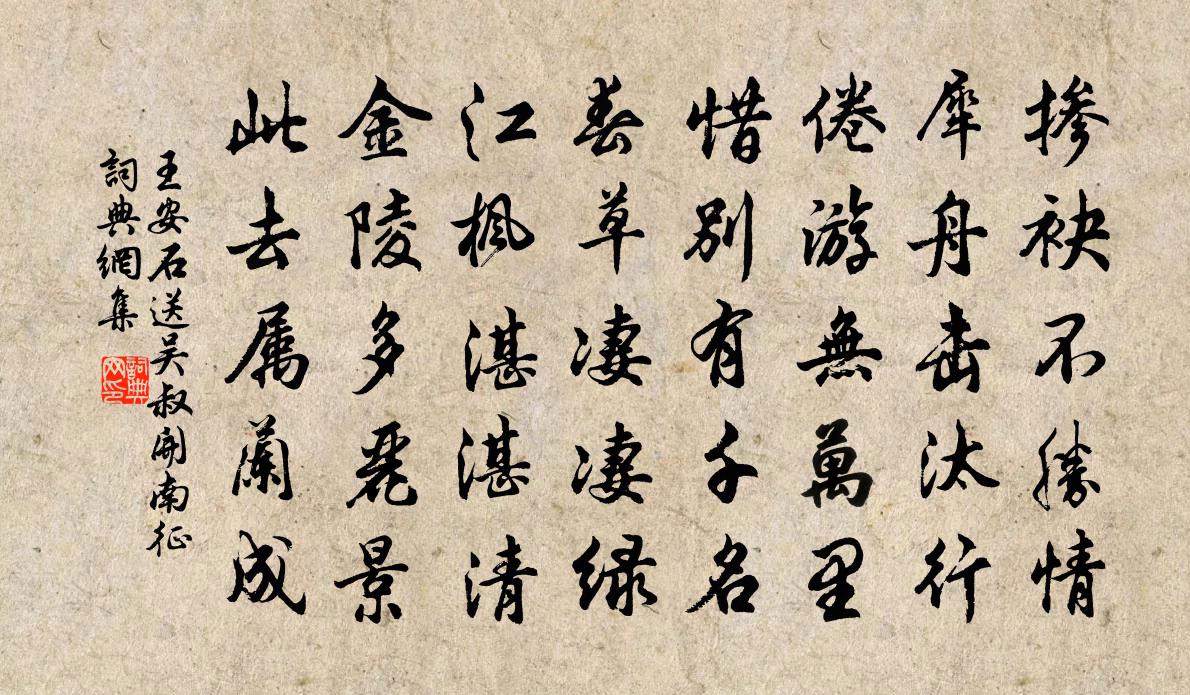 掺袂不勝情
犀舟击汰行
倦游無萬里
惜別有千名
春草凄凄绿
江楓湛湛清
金陵多麗景
此去属蘭成
王安石送吴叔開南征
詞典網集
詞典
网印